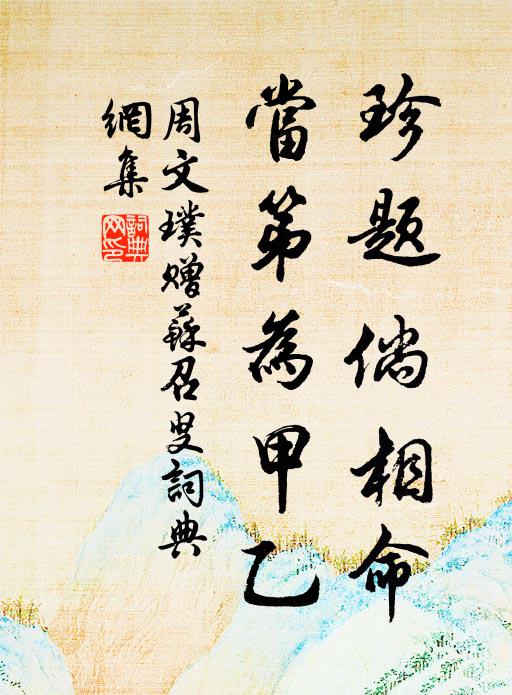 珍題倘相命
當第為甲乙
周文璞贈蘇召叟詞典
網集
詞典網印